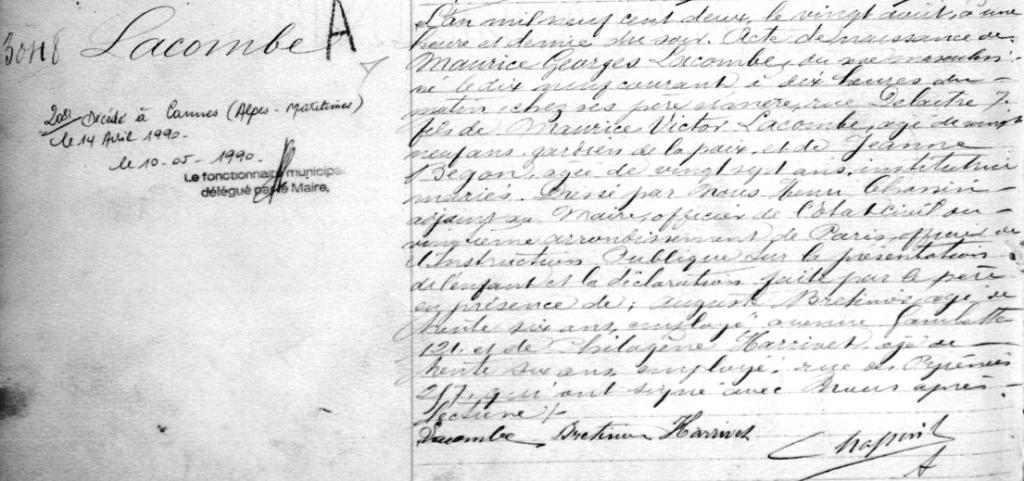 3048 Lacombe A
208 Décédé à Cannes (Alpes-Maritimes)
le 14 Avril 1990.
le 10-05-1990.
Le fonctionnaire municipal
délégué par le Maire,
L'an mil neuf cent deux, le vingt août, à une
heure et demie du soir. Acte de naissance de
Maurice Georges Lacombe, du sexe masculin
né le dix neuf courant à six heures du
matin, chez ses père et mère, rue Delaitre 7.
fils de Maurice Victor Lacombe, agé de vingt
neuf ans, gardien de la paix, et de Jeanne
Begon, agée de vingt sept ans, institutrice
mariés. Dressé par Nous, Henri
adjoint au Maire, officier de l'Etat civil du
vingtième arrondissement de Paris, officier de
l'Instruction Publique sur la présentation
de l'enfant et la déclaration faite par le père
en présence de: Auguste agé de
trente six ans, employé avenue Gambetta
121. et de Philogène Harrivet, agé de
trente six ans, employé, rue des Pyrénées
217, qui ont signé avec Nous après
lecture /.
Lacombe Harrivet